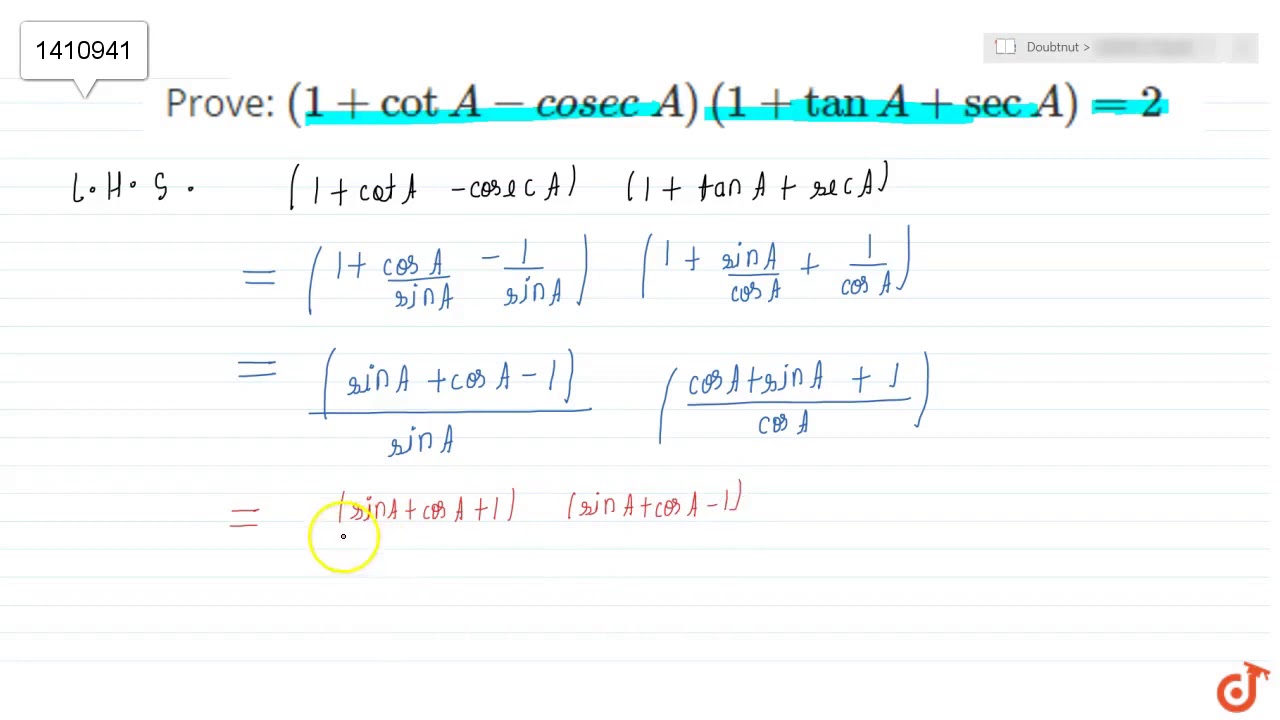 1410941
Doubtnut >
Prove: (1 + cot A − cosec A) (1 + tan A + sec A) = 2
L.H.S. (1 + cot A - cosec A) (1 + tan A + sec A)
= (1 + cos A/sin A - 1/sin A) (1 + sin A/cos A + 1/cos A)
= (sin A + cos A - 1)/sin A ((cos A + sin A + 1)/cos A)
= (sin A + cos A + 1) (sin A + cos A - 1)